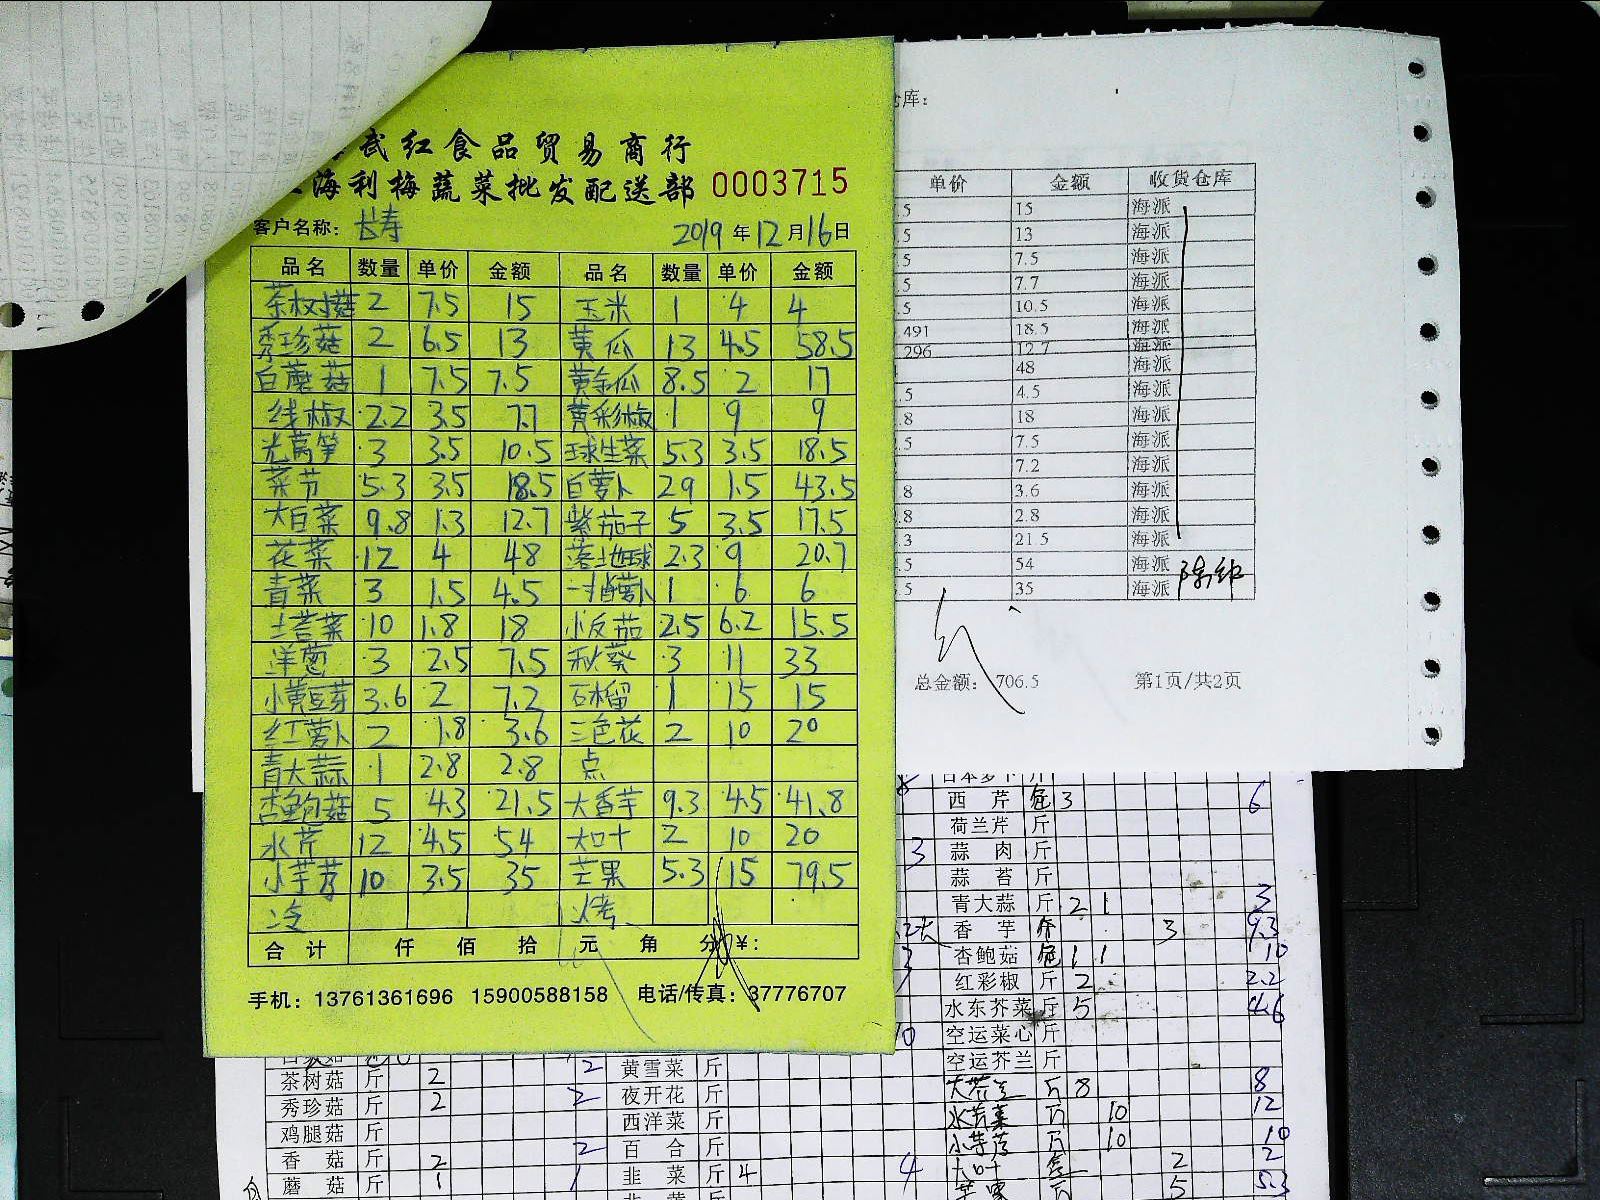 武红食品贸易商行
海利梅蔬菜批发配送部 0003715
客户名称: 长寿 2019年12月16日
品名 数量 单价 金额 品名 数量 单价 金额
茶树菇 2 7.5 15 玉米 1 4 4
秀珍菇 2 6.5 13 黄瓜 13 4.5 58.5
白蘑菇 1 7.5 7.5 黄金瓜 8.5 2 17
线椒 2.2 3.5 7.7 黄彩椒 1 9 9
光莴笋 3 3.5 10.5 球生菜 5.3 3.5 18.5
菜节 5.3 3.5 18.5 白萝卜 29 1.5 43.5
大白菜 9.8 1.3 12.7 紫茄子 5 3.5 17.5
花菜 12 4 48 落地球 2.3 9 20.7
青菜 3 1.5 4.5 萝卜 1 6 6
土苔菜 10 1.8 18 小反茄 2.5 6.2 15.5
洋葱 3 2.5 7.5 秋葵 3 11 33
小黄豆芽 3.6 2 7.2 石榴 1 15 15
红萝卜 2 1.8 3.6 三色花 2 10 20
青大蒜 1 2.8 2.8 点
杏鲍菇 5 4.3 21.5 大香芋 9.3 4.5 41.8
水芹 12 4.5 54 大叶 2 10 20
小芋艿 10 3.5 35 芒果 5.3 15 79.5
冷 烤
合计 仟 佰 拾 元 角 分 ¥:
手机: 13761361696 15900588158 电话/传真: 37776707
库:
单价 金额 收货仓库
.5 15 海派
.5 13 海派
7.5 7.5 海派
.5 7.7 海派
.5 10.5 海派
.491 18.5 海派
.296 12.7 海派
48 海派
.5 4.5 海派
.8 18 海派
.5 7.5 海派
7.2 海派
.8 3.6 海派
.8 2.8 海派
.3 21.5 海派
.5 54 海派
.5 35 海派
总金额: 706.5 第1页/共2页
日本萝卜 斤
西芹 3 6
荷兰芹 斤
3 蒜肉 斤
蒜苔 斤
青大蒜 斤 2 1 3
香芋 3 9.3
杏鲍菇 1 1 10
红彩椒 斤 2 2.2
水东芥菜 斤 5 4.6
空运菜心 斤
空运芥兰 斤
斤 8 8
水芹菜 斤 10 12
小芋艿 斤 10 10
大叶 2 2
斤 5 5.3
茶树菇 斤 2 2 黄雪菜 斤
秀珍菇 斤 2 2 夜开花 斤
鸡腿菇 斤 西洋菜 斤
香菇 斤 2 2 百合 斤
蘑菇 斤 1 1 韭菜 斤 4 4